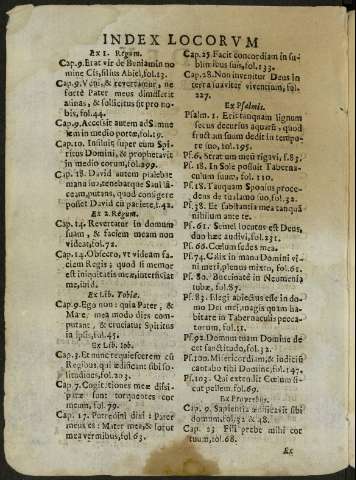 INDEX LOCORVM
Ex 1. Regum.
Cap.9. Erat vir de Beniamin no
mine Cis, filius Abiel, fol.13.
Cap.9. Veni, & revertamur, ne
forte Pater meus dimiserit
asinas, & sollicitus sit pro no-
bis, fol.44.
Cap.9. Accessit autem ad Samue
lem in medio portæ, fol.19.
Cap.10. Insiluit super eum Spi-
ritus Domini, & prophetavit
in medio eorum, fol.299.
Cap.18. David autem psalebat
manu sua, tenebatque Saul lã-
ceam, putans, quod configere
posset David cũ pariete, f.42.
Ex 2. Regum.
Cap.14. Revertatur in domum
suam, & faciem meam non
videat, fol.72.
Cap.14. Obsecro, vt videam fa-
ciem Regis; quod si memor
est iniquitatis meæ, interficiat
me, ibid.
Ex Lib. Tobiæ.
Cap.9. Ego novi: quia Pater, &
Mater mea modo dies com-
putant, & cruciatur Spiritus
in ipsis, fol.45.
Ex Lib. Iob.
Cap.3. Et nunc requiescerem cũ
Regibus, qui ædificant sibi so-
litudines, fol.203.
Cap.7. Cogitationes meæ dissi-
patæ sunt torquentes cor
meum, fol.79.
Cap. 17. Putredini dixi: Pater
meus es: Mater mea, & soror
mea vermibus, fol.63.
Cap.25. Facit concordiam in su-
blimibus suis, fol.133.
Cap.28. Non invenitur Deus in
terra suaviter viventium, fol.
227.
Ex Psalmis.
Psalm.1. Erit tanquam lignum
secus decursus aquarũ, quod
fructum suum dedit in tempo-
re suo, fol.195.
Ps.6. Stratum meũ rigavi, f.83.
Ps.18. In Sole posuit Taberna-
culum suum, fol. 110.
Ps.18. Tanquam Sponsus proce-
dens de tuslamo suo, fol.32.
Ps.38. Et substantia mea tanquã
nihilum ante te.
Ps.61. Semel locutus est Deus,
duo hæc audivi, fol.231.
Ps.66. Cœlum sedes mea.
Ps.74. Calix in manu Domini vi-
ni meri, plenus mixto, fol.61.
Ps.80. Buccinate in Neomenia
tubæ, fol.87.
Ps.83. Elegi abiectus esse in do-
mo Dei mei, magis quam ha-
bitare in Tabernaculis pecca-
torum, fol.11.
Ps.92. Domum tuam Domine de
cet sanctitudo, fol.32.
Ps.100. Misericordiam, & iudiciũ
cantabo tibi Domine, fol.147.
Ps.103. Qui extendit Cœlum si-
cut pellem, fol.69.
Ex Proverbijs.
Cap. 9. Sapientia ædificavit sibi
domum, fol.32 & 48.
Cap. 23 Fili præbe mihi cor
tuum, fol.68.
Ex